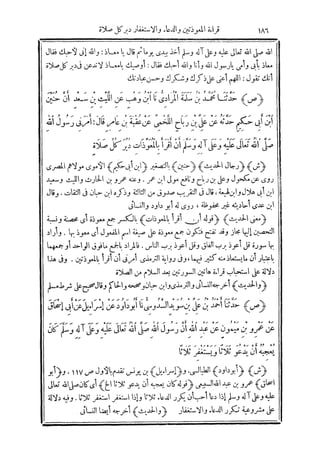 ١٨٦ قراءة المعوذتين والدعاء، والاستغفار دبر كل صلاة
الله صلى الله تعالى عليه وعلى آله وسلم أخذ بيدى يوما ثم قال يا معاذ: والله إنى لأحبك فقال
معاذ بأبى وأمى يارسول الله وأنا والله أحبك فقال: أوصيك يامعاذ لاتدعن فى دبر كل صلاة
أنك تقول: اللهم أعنى على ذكرك وشكرك وحسن عبادتك
﴿ص﴾ حَدَّثَنَا مُحَمَّدُ بْنُ سَلَمَةَ الْمُرَادِىُّ نَا ابْنُ وَهْبٍ عَنِ اللَّيْثِ بْنِ سَعْدٍ أَنَّ حُنَيْنَ
ابْنَ أَبِى حَكِيمٍ حَدَّثَهُ عَنْ عَلِىِّ بْنِ رَبَاحٍ اللَّخْمِىِّ عَنْ عُقْبَةَ بْنِ عَامِرٍ قَالَ: أَمَرَنِى رَسُولُ اللهِ
صَلَّى اللهُ تَعَالَى عَلَيْهِ وَعَلَى آلِهِ وَسَلَّمَ أَنْ أَقْرَأَ بِالْمُعَوِّذَاتِ دُبُرَ كُلِّ صَلَاةٍ
﴿ش﴾ ﴿رجال الحديث﴾ ﴿حنين﴾ بالتصغير ﴿ابن أبى حكيم﴾ الأموى مولاهم المصرى
روى عن مكحول وعلى بن رباح ونافع مولى ابن عمر. وعنه عمرو بن الحارث والليث وسعيد
ابن أبى هلال وابن لهيعة، قال فى التقريب صدوق من الثالثة وذكره ابن حبان فى الثقات. وقال
ابن عدى أحاديثه غير محفوظة، روى له أبو داود والنسائى
﴿معنى الحديث﴾ ﴿قوله أن أقرأ بالمعوذات﴾ بالكسر جمع معوذة أى محصنة ونسبة
التحصين إليها مجاز وقد تفتح فتكون جمع معوذة على صيغة اسم المفعول أى معوذ بها. وأراد
بها سورة قل أعوذ برب الفلق وقل أعوذ برب الناس. فالمراد بالجمع مافوق الواحد أو جمعهما
باعتبار أن مايستعاذ منه كثير فيهما، وفى رواية الترمذى أمرنى أن أقرأ بالمعوذتين. وفى هذا
دلالة على استحباب قراءة هاتين السورتين بعد السلام من الصلاة
﴿والحديث﴾ أخرجه النسائى والترمذى وابن حبان وصححه والحاكم وقال صحيح على شرط مسلم
﴿ص﴾ حَدَّثَنَا أَحْمَدُ بْنُ عَلِىِّ بْنِ سُوَيْدٍ السَّدُوسِىُّ نَا أَبُو دَاوُدَ عَنْ إِسْرَائِيلَ عَنْ أَبِى إِسْحَاقَ
عَنْ عَمْرِو بْنِ مَيْمُونٍ عَنْ عَبْدِ اللهِ أَنَّ رَسُولَ اللهِ صَلَّى اللهُ تَعَالَى عَلَيْهِ وَعَلَى آلِهِ وَسَلَّمَ كَانَ
يُعْجِبُهُ أَنْ يَدْعُوَ ثَلَاثًا وَيَسْتَغْفِرَ ثَلَاثًا
﴿ش﴾ ﴿أبو داود﴾ الطيالسى. و﴿إسرائيل﴾ بن يونس تقدم بالأول ص ١١٧. و﴿أبو
اسحاق﴾ عمرو بن عبد الله السبيعى ﴿قوله كان يعجبه أن يدعو ثلاثا الخ﴾ أى كان صلى الله تعالى
عليه وعلى آله وسلم إذا دعا أحب أن يكرر الدعاء ثلاثا وإذا استغفر استغفر ثلاثا. وفيه دلالة
على مشروعية تكرر الدعاء، والاستغفار ﴿والحديث﴾ أخرجه أيضا النسائى